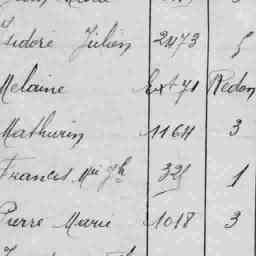 Isidore Julien 2473 5
Melaine Ext 71 Redon
Mathurin 1164 3
Francis Mie Jh 325 1
Pierre Marie 1018 3